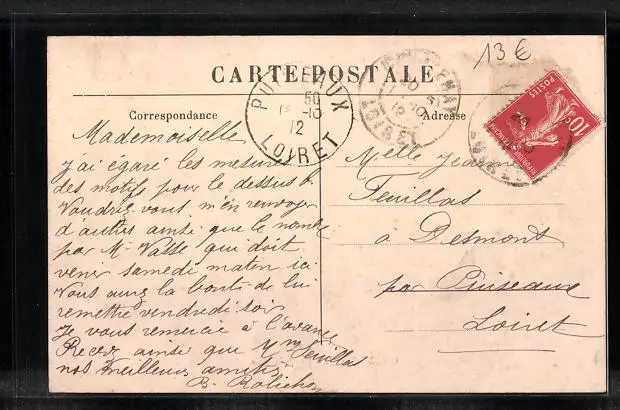 13 €
CARTE POSTALE
Correspondance
Adresse
PUISEAUX
50
-10
12
LOIRET
POSTES
10c
Mademoiselle
J'ai égaré les mesures
des motifs pour le dessus
Voudriez vous m'en renvoyer
d'autres ainsi que le nombre
par Mr Vasse qui doit
venir samedi matin ici
Vous aurez la bonté de lui
remettre vendredi soir
Je vous remercie à l'avance
Recevez ainsi que Mme Feuillas
nos meilleurs amitiés
B.
Melle Jeanne
Feuillas
à Desmont
par Puiseaux
Loiret